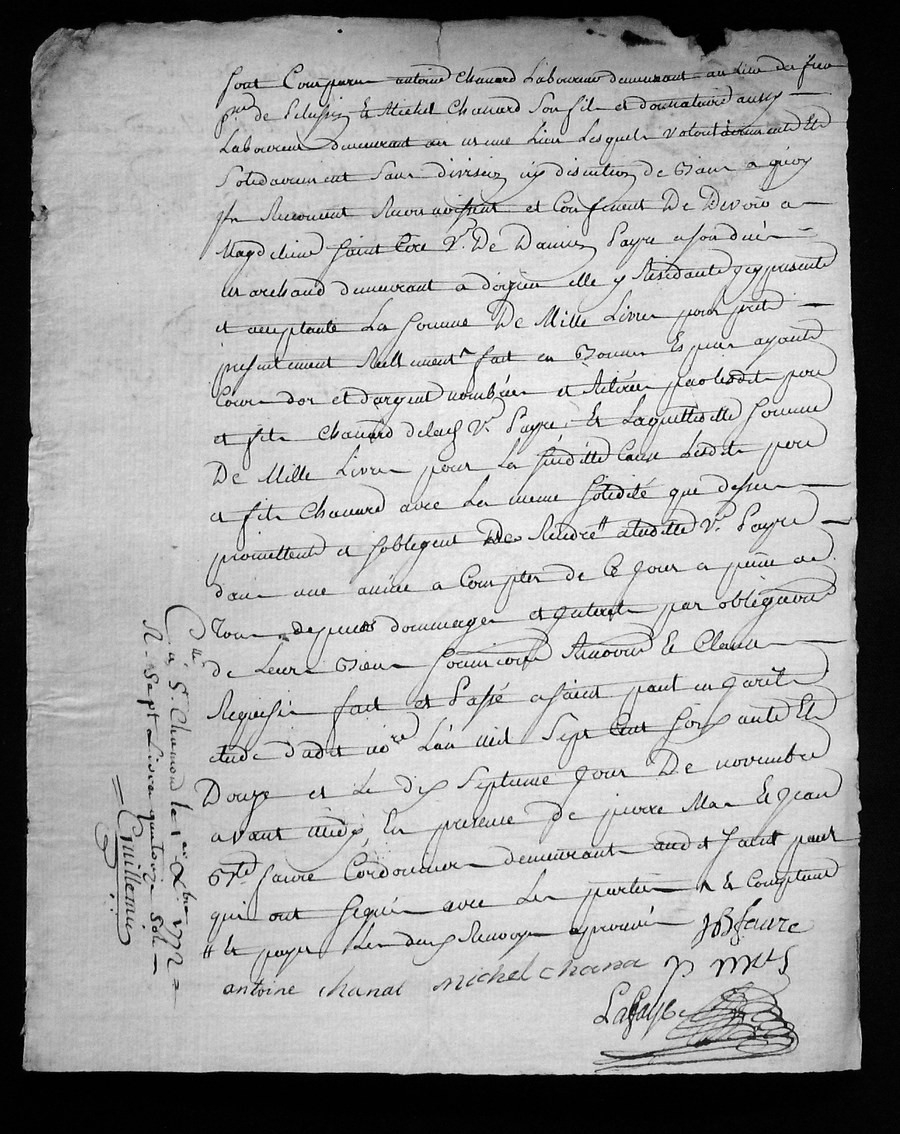 Sont Comparu antoine Chanard Laboureur demeurant au Lieu de
psse de Pelussin Et Michel Chanard Son fils et donnataire aussy
Laboureur demeurant au meme Lieu Lesquels volontairement Et
Solidairement Sans division ny discution de Biens a quoy
ils Renoncent Reconnoissent et Confessent De Devoir a
Magdeleine v.e De Damien Payre a Son décé
marchand demeurant a doizieu elle y Residante icy presente
et acceptante La Somme De Mille Livres pour prêt
presentement Reellement fait en Bonnes Especes ayants
Cours dor et dargent nombrées et Retirées par lesdits pere
et fils Chanard de lad v.e Payre, Et Laquelle ditte Somme
De Mille Livres pour La Susditte Cause Lesdits pere
et fils Chanard avec La meme Solidité que dessus
promettent et Soblegent De Rendre # a laditte v.e Payre
dans une année a Compter de Ce Jour a peine de
Tous depens dommages et interets par obligation
de Leurs Biens Soumissions Renonc.ons Et Clauses
Requises fait et Passé a Saint paul en Jarêts
etude dudit no.re L'an mil Sept Cent Soixante Et
Douze et Le dix Septieme Jour De novembre
avant midy, En presence de pierre Mas Et Jean
B.te faure Cordonnier demeurants aud.t Saint paul
qui ont Signé avec Les parties # Et Comptant
# Et payer Les deux Renvoys aprouvés JB faure
antoine chanat michel chana p mas
Lafaye
C.llé à S.t Chamond le 1.er Xbre 1772
R. Sept Livres quatorze Sols
Guillemin